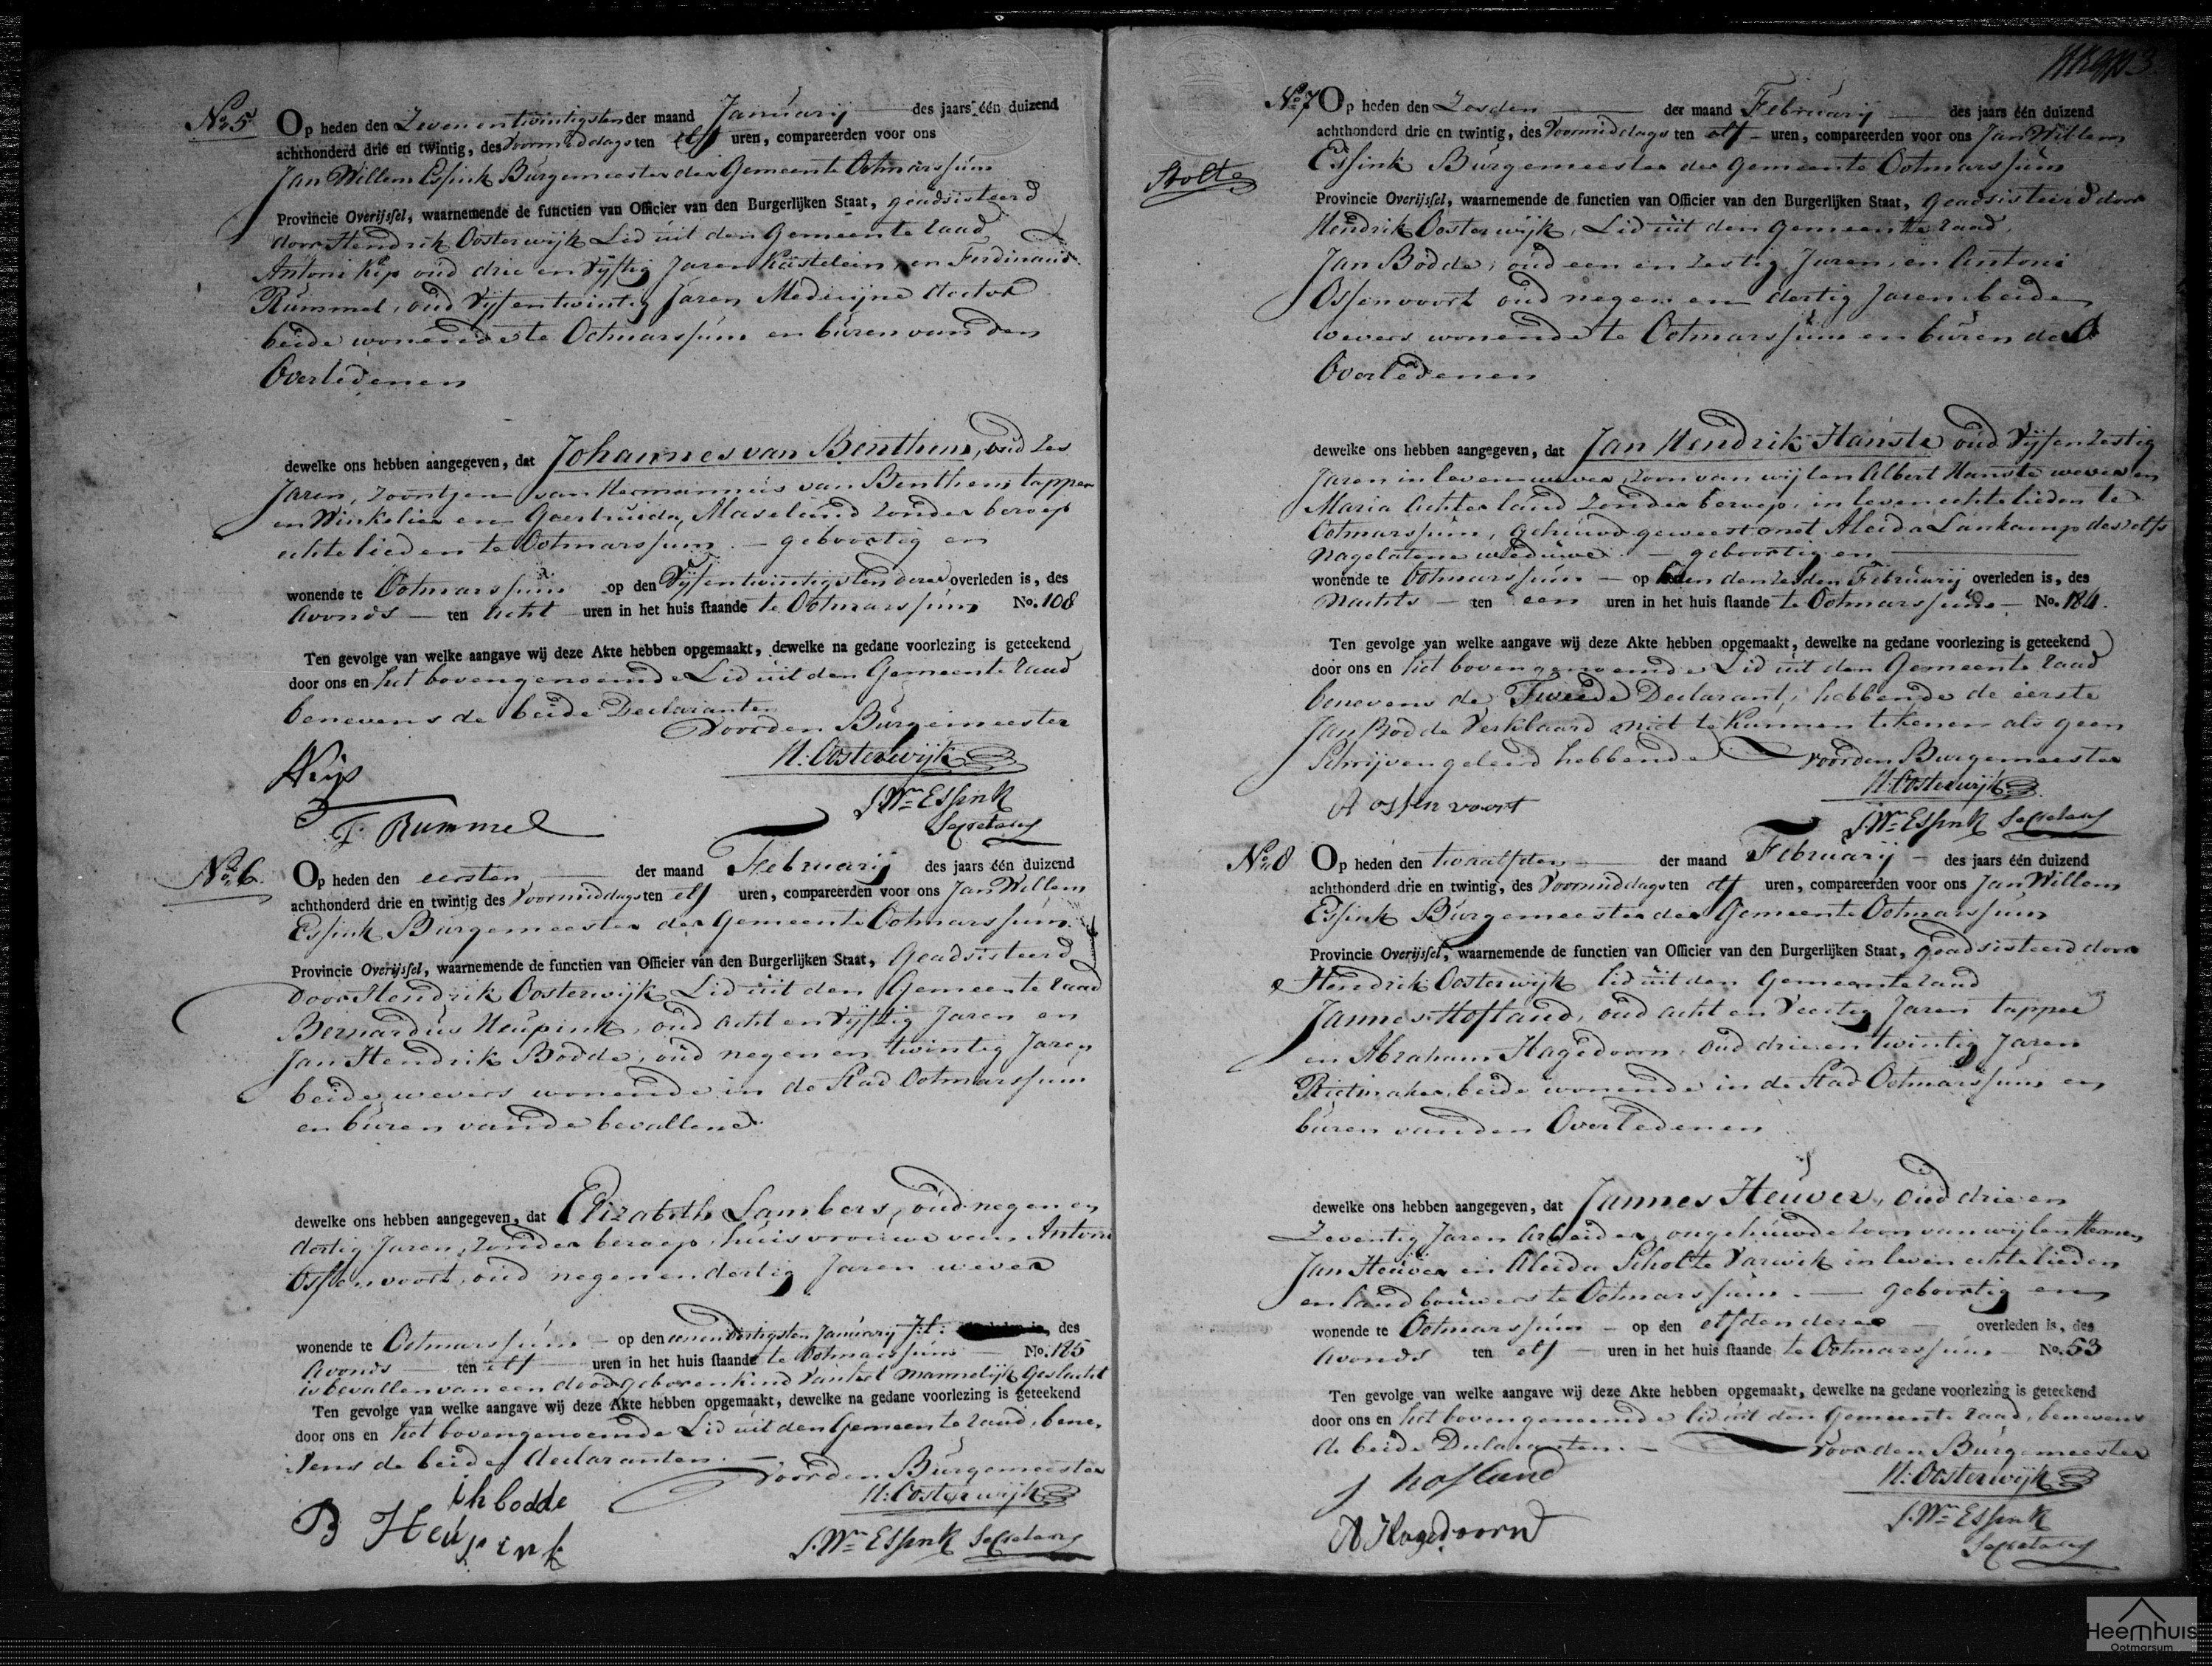 No. 5 Op heden den Zeven en twintigsten der maand Januarij des jaars één duizend
achthonderd drie en twintig, des Voormiddags ten elf uren, compareerden voor ons
Jan Willem Essink Burgemeester der Gemeente Ootmarssum
Provincie Overijssel, waarnemende de functien van Officier van den Burgerlijken Staat, geadsisteerd
door Hendrik Oosterwijk Lid uit den Gemeente raad
Antoni Kip oud drie en Vijftig Jaren Kastelein, en Ferdinand
Rummel, oud Vijf en twintig Jaren Medicijne doctor
beide wonende te Ootmarssum en buren van den
Overledenen
dewelke ons hebben aangegeven, dat Johannes van Benthem, oud zes
Jaren, zoontjen van Hermannus van Benthem tapper
en Winkelier en Geertruida Maseland zonder beroep
echtelieden te Ootmarssum. — geboortig en
wonende te Ootmarssum op den Vijf en twintigsten dezer overleden is, des
Avonds — ten acht uren in het huis staande te Ootmarssum No. 108
Ten gevolge van welke aangave wij deze Akte hebben opgemaakt, dewelke na gedane voorlezing is geteekend
door ons en het bovengenoemde Lid uit den Gemeente raad
benevens de beide Declaranten
Voor den Burgemeester
H: Oosterwijk
AKip
J. Wm Essink
Secretaris
F. Rummel
No. 6. Op heden den eersten der maand Februarij des jaars één duizend
achthonderd drie en twintig des Voormiddags ten elf uren, compareerden voor ons Jan Willem
Essink Burgemeester der Gemeente Ootmarssum
Provincie Overijssel, waarnemende de functien van Officier van den Burgerlijken Staat, Geadsisteerd
door Hendrik Oosterwijk Lid uit den Gemeente raad
Bernardus Heupink, oud acht en Vijftig Jaren en
Jan Hendrik Bodde, oud negen en twintig Jaren
beide wevers wonende in de Stad Ootmarssum
en buren van de bevallene
dewelke ons hebben aangegeven, dat Elizabeth Lambers, oud negen en
dertig Jaren, zonder beroep, huisvrouwe van Antoni
Ossenvoort, oud negen en dertig Jaren wever
wonende te Ootmarssum — op den eenendertigsten Januarij J.l: des
Avonds ten elf uren in het huis staande te Ootmarssum — No. 185
is bevallen van een dood geboren kind van het mannelijk Geslacht
Ten gevolge van welke aangave wij deze Akte hebben opgemaakt, dewelke na gedane voorlezing is geteekend
door ons en het bovengenoemde Lid uit den Gemeente raad, bene,
vens de beide declaranten. —
Voor den Burgemeester
ih bodde
H: Oosterwijk
B Heupink
J. Wm Essink Secretaris
No. 7 Op heden den Zesden der maand Februarij des jaars één duizend
achthonderd drie en twintig, des Voormiddags ten elf uren, compareerden voor ons Jan Willem
Essink Burgemeester der Gemeente Ootmarssum
Provincie Overijssel, waarnemende de functien van Officier van den Burgerlijken Staat, geadsisteerd door
Hendrik Oosterwijk, Lid uit den Gemeente raad,
Jan Bodde, oud een en zestig Jaren, en Antoni
Ossenvoort oud negen en dertig Jaren beide
wevers wonende te Ootmarssum en buren des
Overledenen
dewelke ons hebben aangegeven, dat Jan Hendrik Hanste oud Vijf en zestig
Jaren in leven wever, Zoon van wijlen Albert Hanste wever en
Maria Achterland zonder beroep, in leven echtelieden te
Ootmarssum, gehuwd geweest met Aleida Lankamp deszelfs
Nagelatene weduwe. — geboortig en
wonende te Ootmarssum — op heden den zesden Februarij overleden is, des
Nachts — ten een uren in het huis staande te Ootmarssum — No. 184.
Ten gevolge van welke aangave wij deze Akte hebben opgemaakt, dewelke na gedane voorlezing is geteekend
door ons en het bovengenoemde Lid uit den Gemeente raad
benevens de Tweede Declarant, hebbende de eerste
Jan Bodde Verklaard niet te kunnen tekenen als geen
Schrijven geleerd hebbende
Voor den Burgemeester
H: Oosterwijk
A ossen voort
J. Wm Essink Secretaris
No. 8 Op heden den twaalfden der maand Februarij — des jaars één duizend
achthonderd drie en twintig, des Voormiddags ten elf uren, compareerden voor ons Jan Willem
Essink Burgemeester der Gemeente Ootmarssum
Provincie Overijssel, waarnemende de functien van Officier van den Burgerlijken Staat, geadsisteerd door
Hendrik Oosterwijk lid uit den Gemeente raad
Jannes Hofland, oud acht en Veertig Jaren tapper
en Abraham Hagedoorn, Oud drie en twintig Jaren
Rietmaker, beide wonende in de Stad Ootmarssum en
buren van den Overledenen
dewelke ons hebben aangegeven, dat Jannes Heuver, Oud drie en
Zeventig Jaren Arbeider, ongehuwde zoon van wijlen Hermen
Jan Heuver en Aleida Scholte Varwik in leven echtelieden
en landbouwers te Ootmarssum. — geboortig en
wonende te Ootmarssum — op den elfden dezer — overleden is, des
Avonds ten elf — uren in het huis staande te Ootmarssum — No. 53
Ten gevolge van welke aangave wij deze Akte hebben opgemaakt, dewelke na gedane voorlezing is geteekend
door ons en het bovengenoemde lid uit den Gemeente raad, benevens
de beide Declaranten. —
Voor den Burgemeester
J hofland
H: Oosterwijk
A Hagedoorn
J. Wm Essink
Secretaris
Heemhuis
Ootmarsum